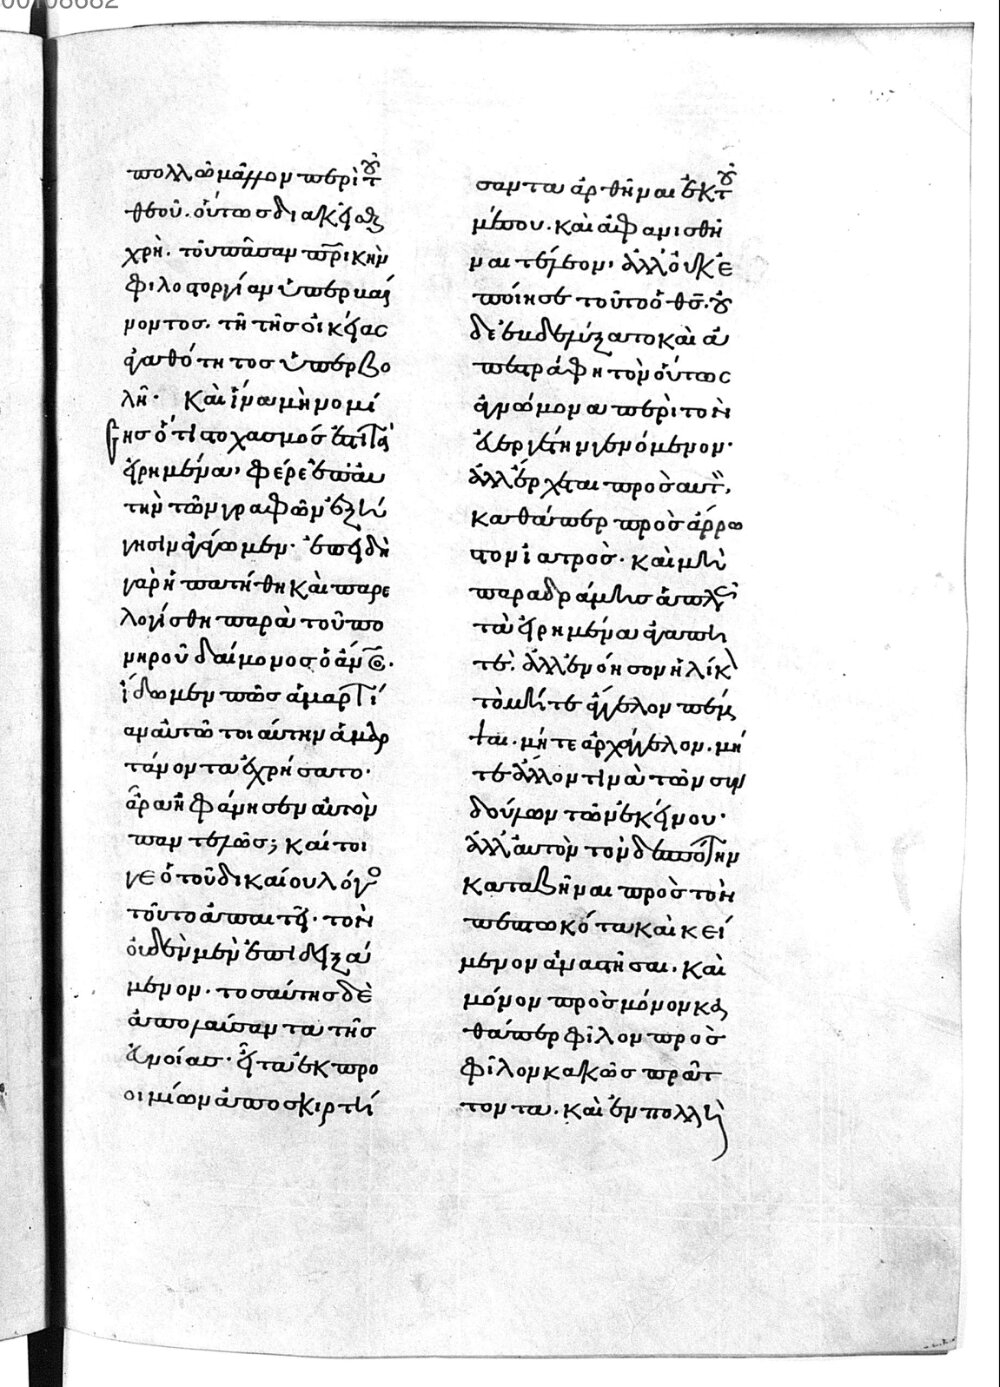 00108682
πολλῶ μᾶλλον περὶ τοῦ
θεοῦ. οὕτως διακεῖσθαι
χρὴ. τοῦ πᾶσαν πρικὴν
φιλοστοργίαν ὑπερβαί
νοντος. τῆ τῆς οἰκείας
ἀγαθότητος ὑπερβο
λῆ. Καὶ ἵνα μὴ νομί
σης ὅτι στοχασμός ἐστι τὰ
εἰρημένα. φέρε ἐπ' αὐ
τὴν τῶν γραφῶν ἐξή
γησιν ἀγάγωμεν. ἐπειδὴ
γὰρ ἠπατήθη καὶ παρε
λογίσθη παρὰ τοῦ πο
νηροῦ δαίμονος ὁ ἄνος.
ἴδωμεν πῶς ἁμαρτί
αν αὐτῶ τοιαύτην ἁμαρ
τάνοντα ἐχρήσατο.
ἆρα ἠφάνησεν αὐτὸν
παντελῶς; καίτοι
γε ὁ τοῦ δικαίου λόγος
τοῦτο ἀπαιτεῖ. τὸν
οὐδὲν μὲν ἐπιδειξά
μενον. τοσαύτης δὲ
ἀπολαύσαντα τῆς
εὐνοίας. εἶτα ἐκ προ
οιμίων ἀποσκιρτή
σαντα ἀρθῆναι ἐκ τοῦ
μέσου. καὶ ἀφανισθῆ
ναι τέλεον. ἀλλ' οὐκ ἐ
ποίησε τοῦτο ὁ θς. οὐ
δὲ ἐβδελύξατο καὶ ἀ
πεστράφη τὸν οὕτως
ἀγνώμονα περὶ τὸν
εὐεργέτην γενόμενον.
ἀλλ' ἔρχεται πρὸς αὐτὸν,
καθάπερ πρὸς ἄρρω
στον ἰατρος. καὶ μὴ
παραδράμης ἁπλῶς
τὰ εἰρημένα ἀγαπη
τέ. ἀλλ' ἐννόησον ἡλίκον
τὸ μήτε ἄγγελον πέμψαι
μήτε ἀρχάγγελον. μή
τε ἄλλον τινὰ τῶν συν
δούλων τῶν ἐκείνου.
ἀλλ' αὐτὸν τὸν δεσπότην
καταβῆναι πρὸς τὸν
πεπτωκότα καὶ κεί
μενον ἀναστῆσαι. καὶ
μόνον πρὸς μόνον κα
θάπερ φίλον πρὸς
φίλον κακῶς πράτ
τοντα. καὶ ἐν πολλῆ